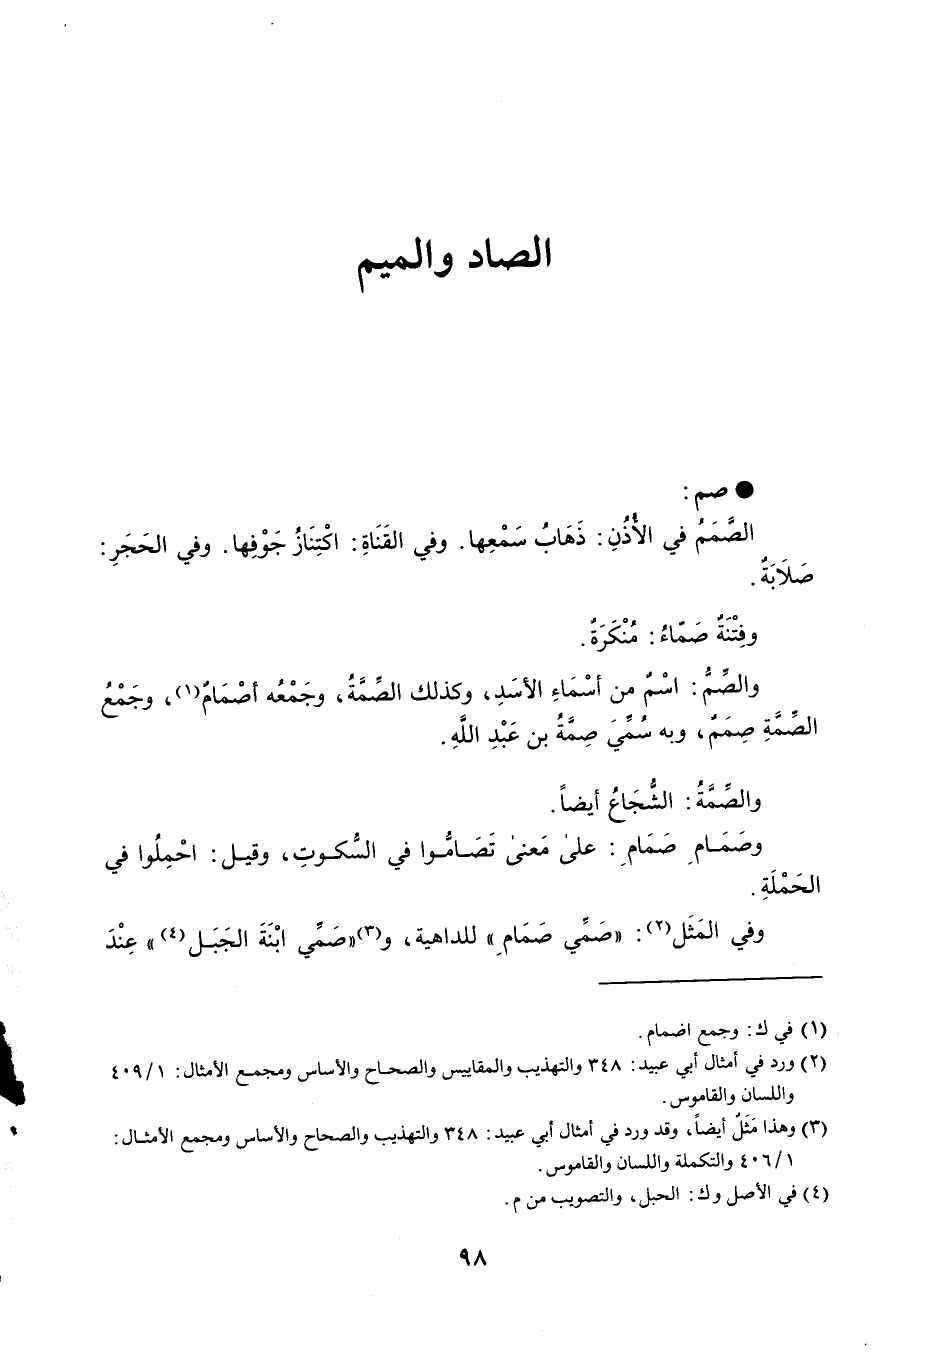 الصاد والميم
● صم:
الصَّمَمُ في الأُذُنِ: ذَهَابُ سَمْعِها. وفي القَنَاةِ: اكْتِنَازُ جَوْفِها. وفي الحَجَرِ:
صَلَابَةٌ.
وفِتْنَةٌ صَمّاءُ: مُنْكَرَةٌ.
والصِّمُّ: اسْمٌ من أسْمَاءِ الأسَدِ، وكذلك الصِّمَّةُ، وجَمْعُه أصْمَامٌ(١)، وجَمْعُ
الصِّمَّةِ صِمَمٌ، وبه سُمِّيَ صِمَّةُ بن عَبْدِ اللَّهِ.
والصِّمَّةُ: الشُّجَاعُ أيضاً.
وصَمَـامِ صَمَامِ: علىٰ مَعنىٰ تَصَـامُّـوا في السُّكـوتِ، وقيـل: احْمِلُوا في
الحَمْلَةِ.
وفي المَثَلِ(٢): «صَمِّي صَمَامِ» للداهية، و(٣)«صَمِّي ابْنَةَ الجَبَـلِ(٤)» عِنْدَ
(١) في ك: وجمع اضمام.
(٢) ورد في أمثال أبي عبيد: ٣٤٨ والتهذيب والمقاييس والصحـاح والأساس ومجمـع الأمثال: ٤٠٩/١
واللسان والقاموس.
(٣) وهذا مَثَلٌ أيضاً، وقد ورد في أمثال أبي عبيد: ٣٤٨ والتهذيب والصحاح والأساس ومجمع الأمثـال:
٤٠٦/١ والتكملة واللسان والقاموس.
(٤) في الأصل وك: الحبل، والتصويب من م.
٩٨